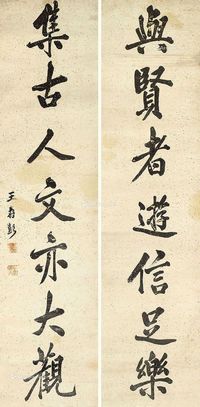 與賢者遊信足樂
集古人文亦大觀
王壽彭